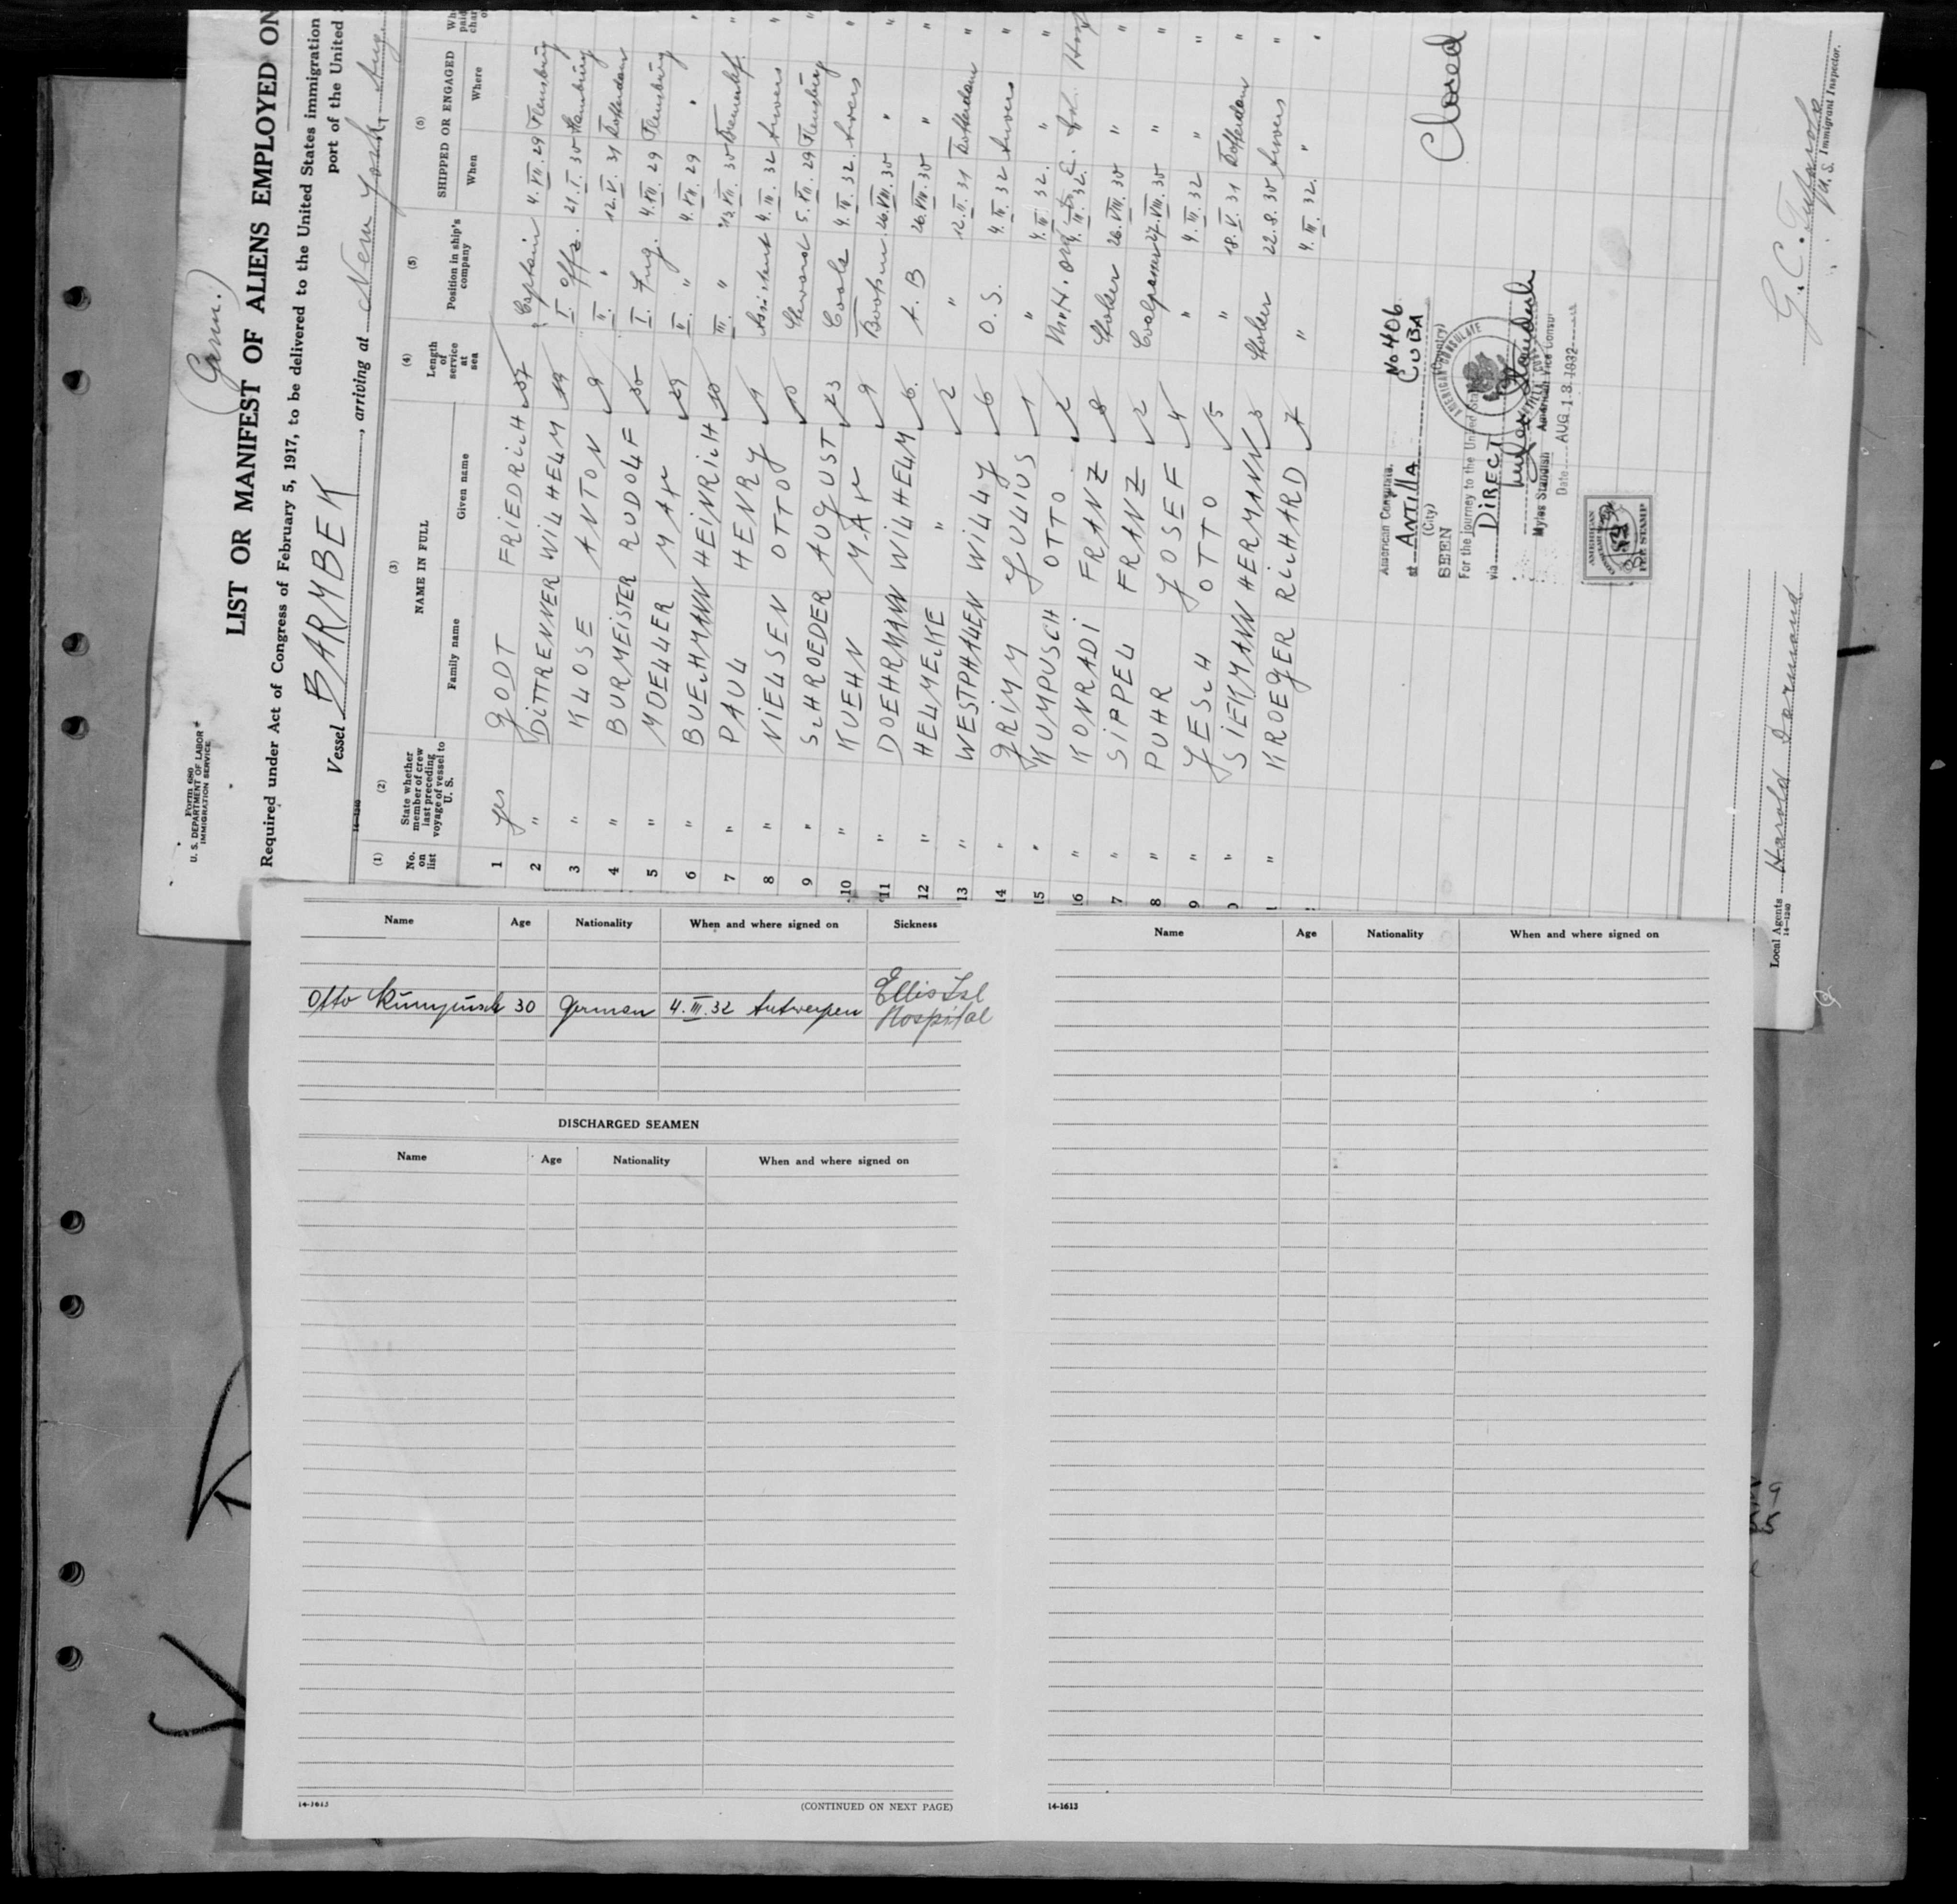 (Germ.)
Form 680
U. S. DEPARTMENT OF LABOR
IMMIGRATION SERVICE
LIST OR MANIFEST OF ALIENS EMPLOYED ON
Required under Act of Congress of February 5, 1917, to be delivered to the United States immigration
port of the United
Vessel BARMBEK, arriving at New York, Aug.
(1) (2) (3) (4) (5) (6)
No. on list State whether member of crew last preceding voyage of vessel to U. S. NAME IN FULL Family name Given name Length of service at sea Position in ship's company SHIPPED OR ENGAGED When Where
1 yes GODT FRIEDRICH 37 Captain 4.VII.29 Flensburg
2 " DITTRENNER WILHELM 19 I. Offz. 21.I.30 Hamburg
3 " KLOSE ANTON 9 II. " 12.V.31 Rotterdam
4 " BURMEISTER RUDOLF 35 I. Ing. 4.VII.29 Flensburg
5 " MOELLER MAX 29 II. " 4.VII.29 "
6 " BUECHMANN HEINRICH 10 III. " 13.VII.30
7 " PAUL HENRY 1 Assistent 4.III.32 Anvers
8 " NIELSEN OTTO 10 Steward 5.VII.29 Flensburg
9 " SCHROEDER AUGUST 23 Cook 4.III.32. Anvers
10 " KUEHN MAX 9 Bootsm. 26.VIII.30 "
11 " DOEHRMANN WILHELM 6. A. B 26.VIII.30 "
12 " HELMCKE " 2 " 12.II.31 Rotterdam
13 " WESTPHALEN WILLY 6 O. S. 4.III.32 Anvers
14 " GRIMM JULIUS 1 " 4.III.32. "
15 " KUMPUSCH OTTO 2 4.III.32.
16 " KONRADI FRANZ 8 Stoker 26.VIII.30 "
17 " SIPPEL FRANZ 2 27.VIII.30 "
18 " PUHR JOSEF 4 " 4.III.32 "
19 " JESCH OTTO 5 " 18.V.31 Rotterdam
" SIEKMANN HERMANN 3 Stoker 22.8.30 Anvers
" KROEGER RICHARD 7 " 4.III.32. "
No 406
American Consulate.
at ANTILLA CUBA
(City) (Country)
SEEN
For the journey to the United States
via DIRECT
AMERICAN CONSULATE
Myles Standish
Myles Standish American Vice Consul
Date AUG 13 1932
AMERICAN
FEE STAMP
Closed
U. S. Immigrant Inspector.
Local Agents
14-1240
Name Age Nationality When and where signed on Sickness
Otto Kumpusch 30 German 4.III.32 Antwerpen Ellis Isl
Hospital
DISCHARGED SEAMEN
Name Age Nationality When and where signed on
14-1613 (CONTINUED ON NEXT PAGE)
Name Age Nationality When and where signed on
14-1613